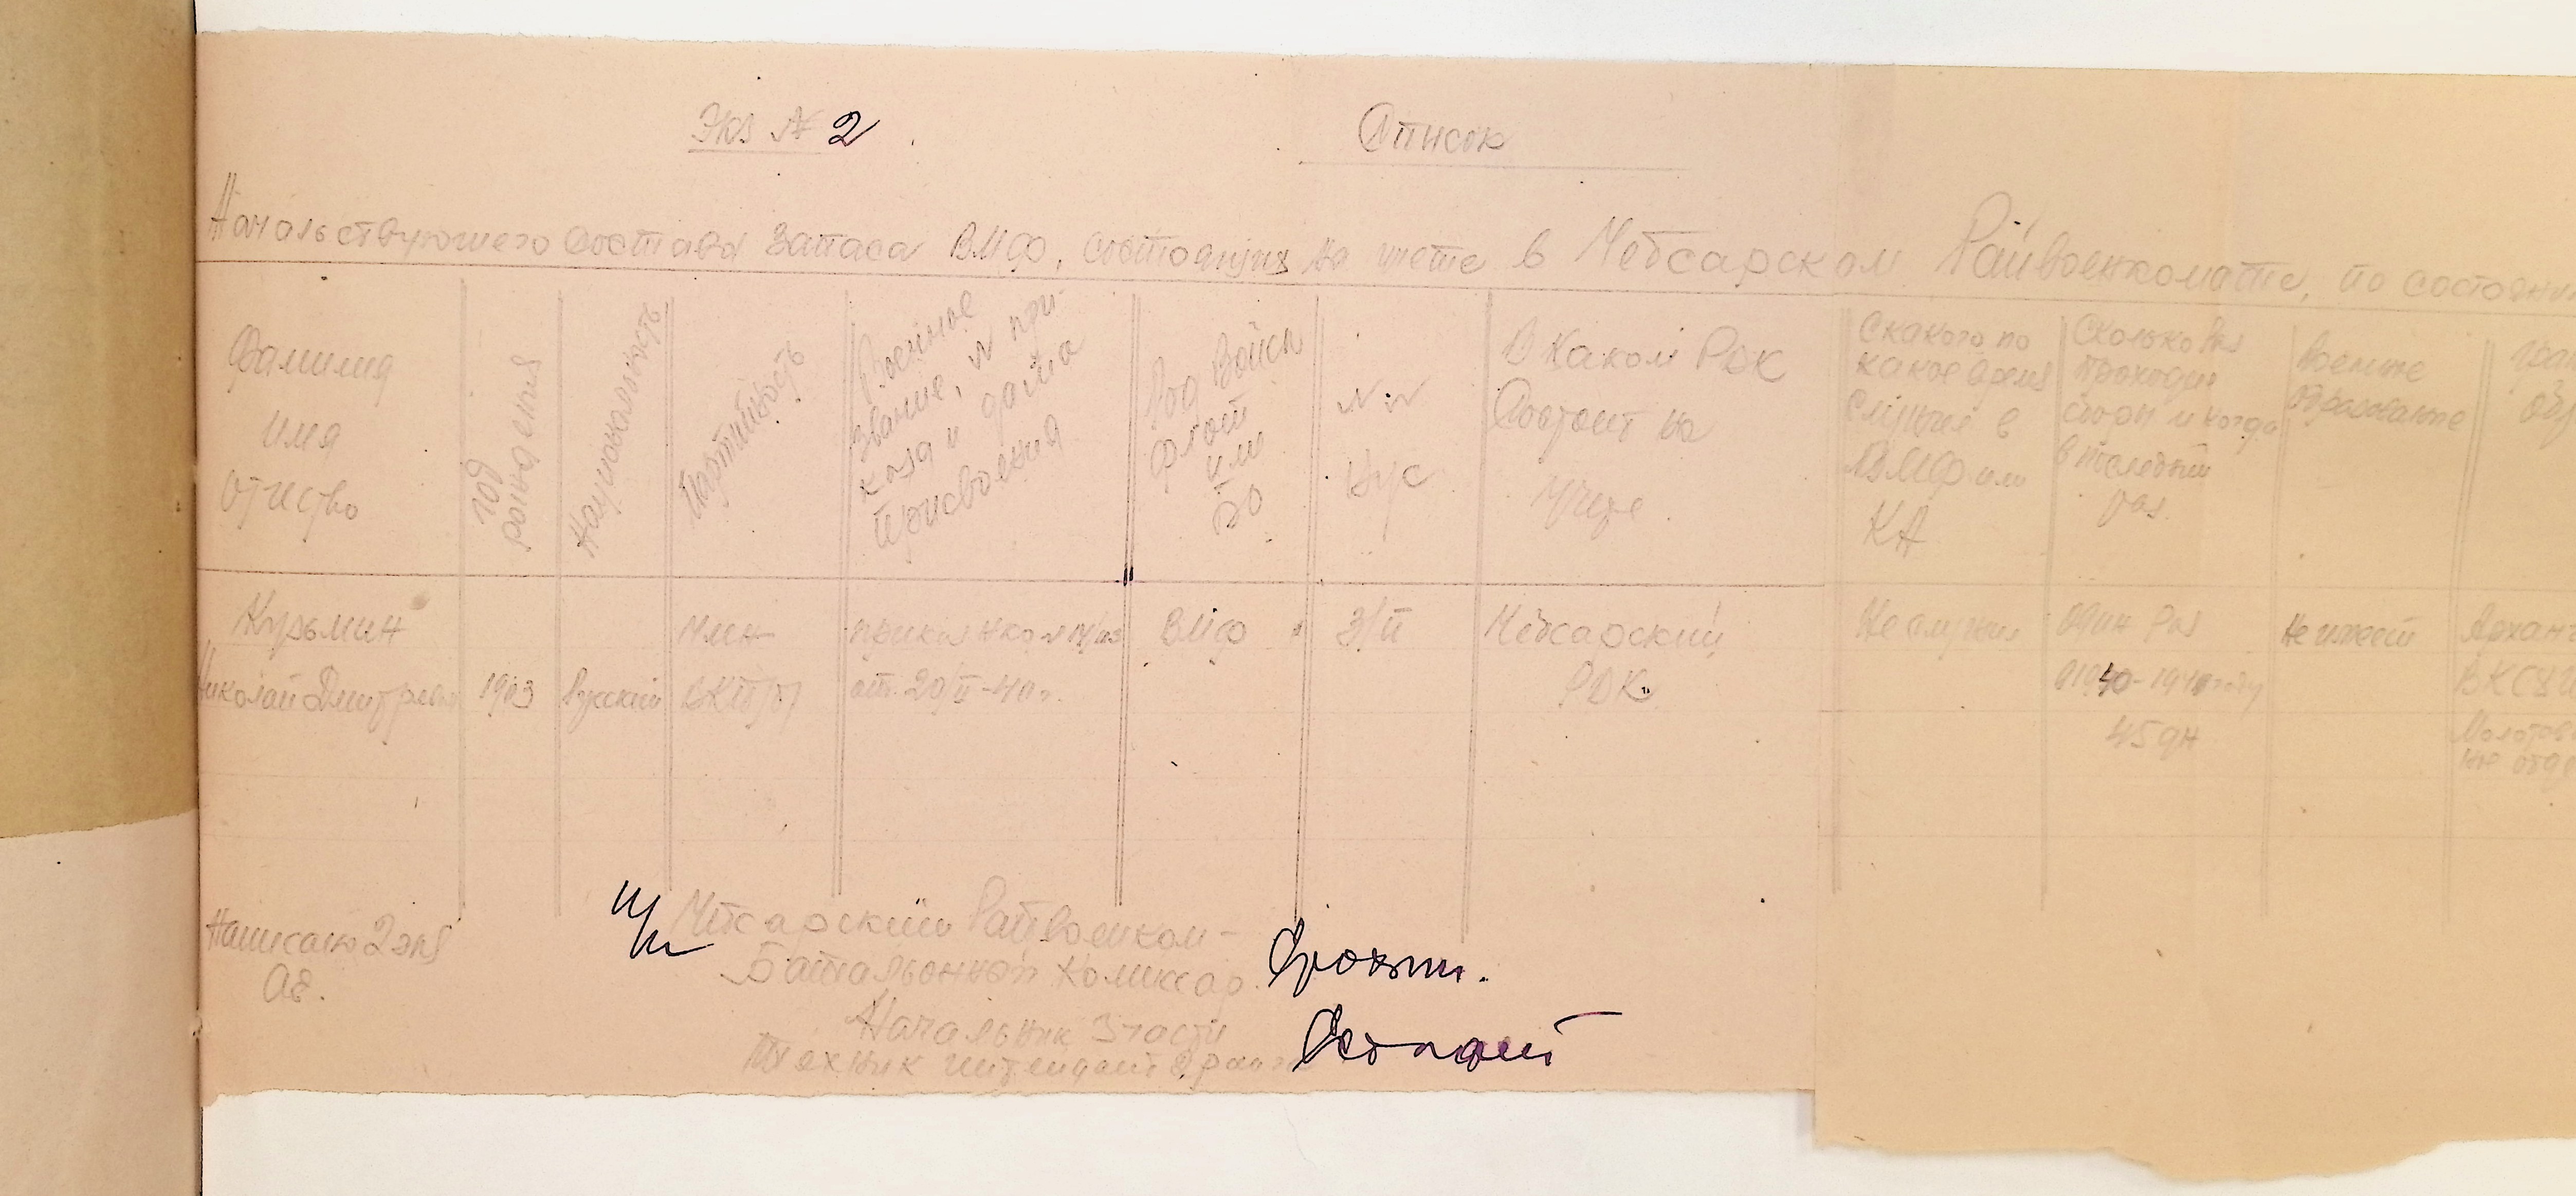 Экз № 2
Список
Начальствующего Состава Запаса ВМФ, состоящих на учете в Чебсарском Райвоенкомате, по состоянию
Фамилия
имя
отчество
год
рождения
Национальность
Партийность
Военное
звание, № при-
каза и дата
присвоения
Род Войск
флот
или
БО
№ №
Вус
В каком РВК
Состоит на
учете.
С какого по
какое время
Служил в
ВМФ или
КА
Сколько Раз
проходил
сборы и когда
в последний
раз.
Военное
Образование
Кузьмин
Николай Дмитриевич
1903
Русский
Член
ВКП(б)
приказ НКО №
от 20/II-40 г.
ВМФ
3/П
Чебсарский
РВК.
Не служил
Один Раз
в 1940-194 году
45 дн
Не имеет
Архан
Молотов
Написано 2 экз
Чебсарский Райвоенком-
Батальонный Комиссар.
Начальник 3 части
Техник интендант 2 ранга